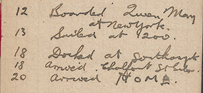 12 Boarded Queen Mary
at New York.
13 Sailed at 1200.
18 Docked at Southampt
18 Arrived Chalfont St Giles
20 Arrived HOME.